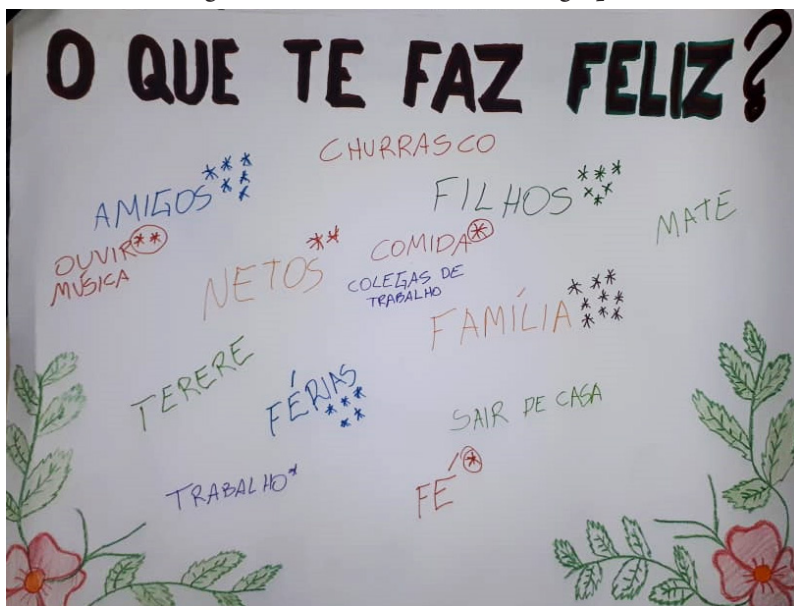 O QUE TE FAZ FELIZ?
CHURRASCO
AMIGOS ******
FILHOS *****
MATE
OUVIR **
MÚSICA
NETOS **
COMIDA *
COLEGAS DE
TRABALHO
FAMÍLIA ********
TERERE
FÉRIAS *****
SAIR DE CASA
TRABALHO *
FÉ *